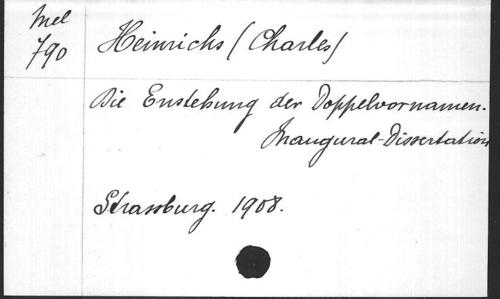 Mel
790
Heinrichs (Charles)
Die Enstehung der Doppelvornamen.
Inaugural-Dissertation
Strassburg. 1908.